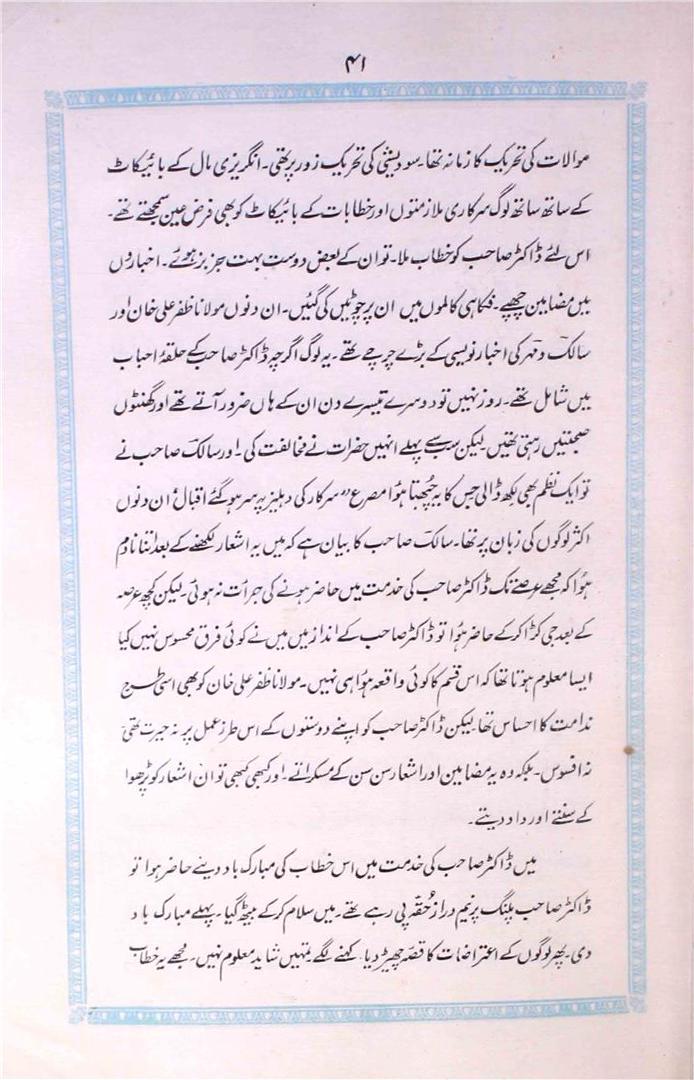 ۴۱
موالات کی تحریک کا زمانہ تھا۔ سودیشی کی تحریک زور پر تھی۔ انگریزی مال کے بائیکاٹ
کے ساتھ ساتھ لوگ سرکاری ملازمتوں اور خطابات کے بائیکاٹ کو بھی فرض عین سمجھتے تھے۔
اس لئے ڈاکٹر صاحب کو خطاب ملا۔ تو ان کے بعض دوست بہت جز بز ہوئے۔ اخباروں
میں مضامین چھپے۔ فکاہی کالموں میں ان پر چوٹیں کی گئیں۔ ان دنوں مولانا ظفر علی خان اور
سالکؔ و مہرؔ کی اخبار نویسی کے بڑے چرچے تھے۔ یہ لوگ اگرچہ ڈاکٹر صاحب کے حلقۂ احباب
میں شامل تھے۔ روز نہیں تو دوسرے تیسرے دن ان کے ہاں ضرور آتے تھے اور گھنٹوں
صحبتیں رہتی تھیں لیکن سب سے پہلے انہیں حضرات نے مخالفت کی۔ اور سالکؔ صاحب نے
تو ایک نظم بھی لکھ ڈالی جس کا یہ چُبھتا ہُوا مصرع ”سرکار کی دہلیز پہ سر ہو گئے اقبال“ ان دنوں
اکثر لوگوں کی زبان پر تھا۔ سالکؔ صاحب کا بیان ہے کہ میں یہ اشعار لکھنے کے بعد اتنا نادم
ہُوا کہ مجھے عرصے تک ڈاکٹر صاحب کی خدمت میں حاضر ہونے کی جرأت نہ ہوئی۔ لیکن کچھ عرصہ
کے بعد جی کڑا کر کے حاضر ہُوا تو ڈاکٹر صاحب کے انداز میں میں نے کوئی فرق محسوس نہیں کیا
ایسا معلوم ہوتا تھا کہ اس قسم کا کوئی واقعہ ہُوا ہی نہیں۔ مولانا ظفر علی خان کو بھی اسی طرح
ندامت کا احساس تھا۔ لیکن ڈاکٹر صاحب کو اپنے دوستوں کے اس طرزِ عمل پر نہ حیرت تھی
نہ افسوس۔ بلکہ وہ یہ مضامین اور اشعار سن سن کے مسکراتے۔ اور کبھی کبھی تو ان اشعار کو پڑھوا
کے سنتے اور داد دیتے۔
میں ڈاکٹر صاحب کی خدمت میں اس خطاب کی مبارک باد دینے حاضر ہوا تو
ڈاکٹر صاحب پلنگ پر نیم دراز حُقّہ پی رہے تھے۔ میں سلام کر کے بیٹھ گیا۔ پہلے مبارک باد
دی۔ پھر لوگوں کے اعتراضات کا قصّہ چھیڑ دیا۔ کہنے لگے تمہیں شاید معلوم نہیں۔ مجھے یہ خطاب